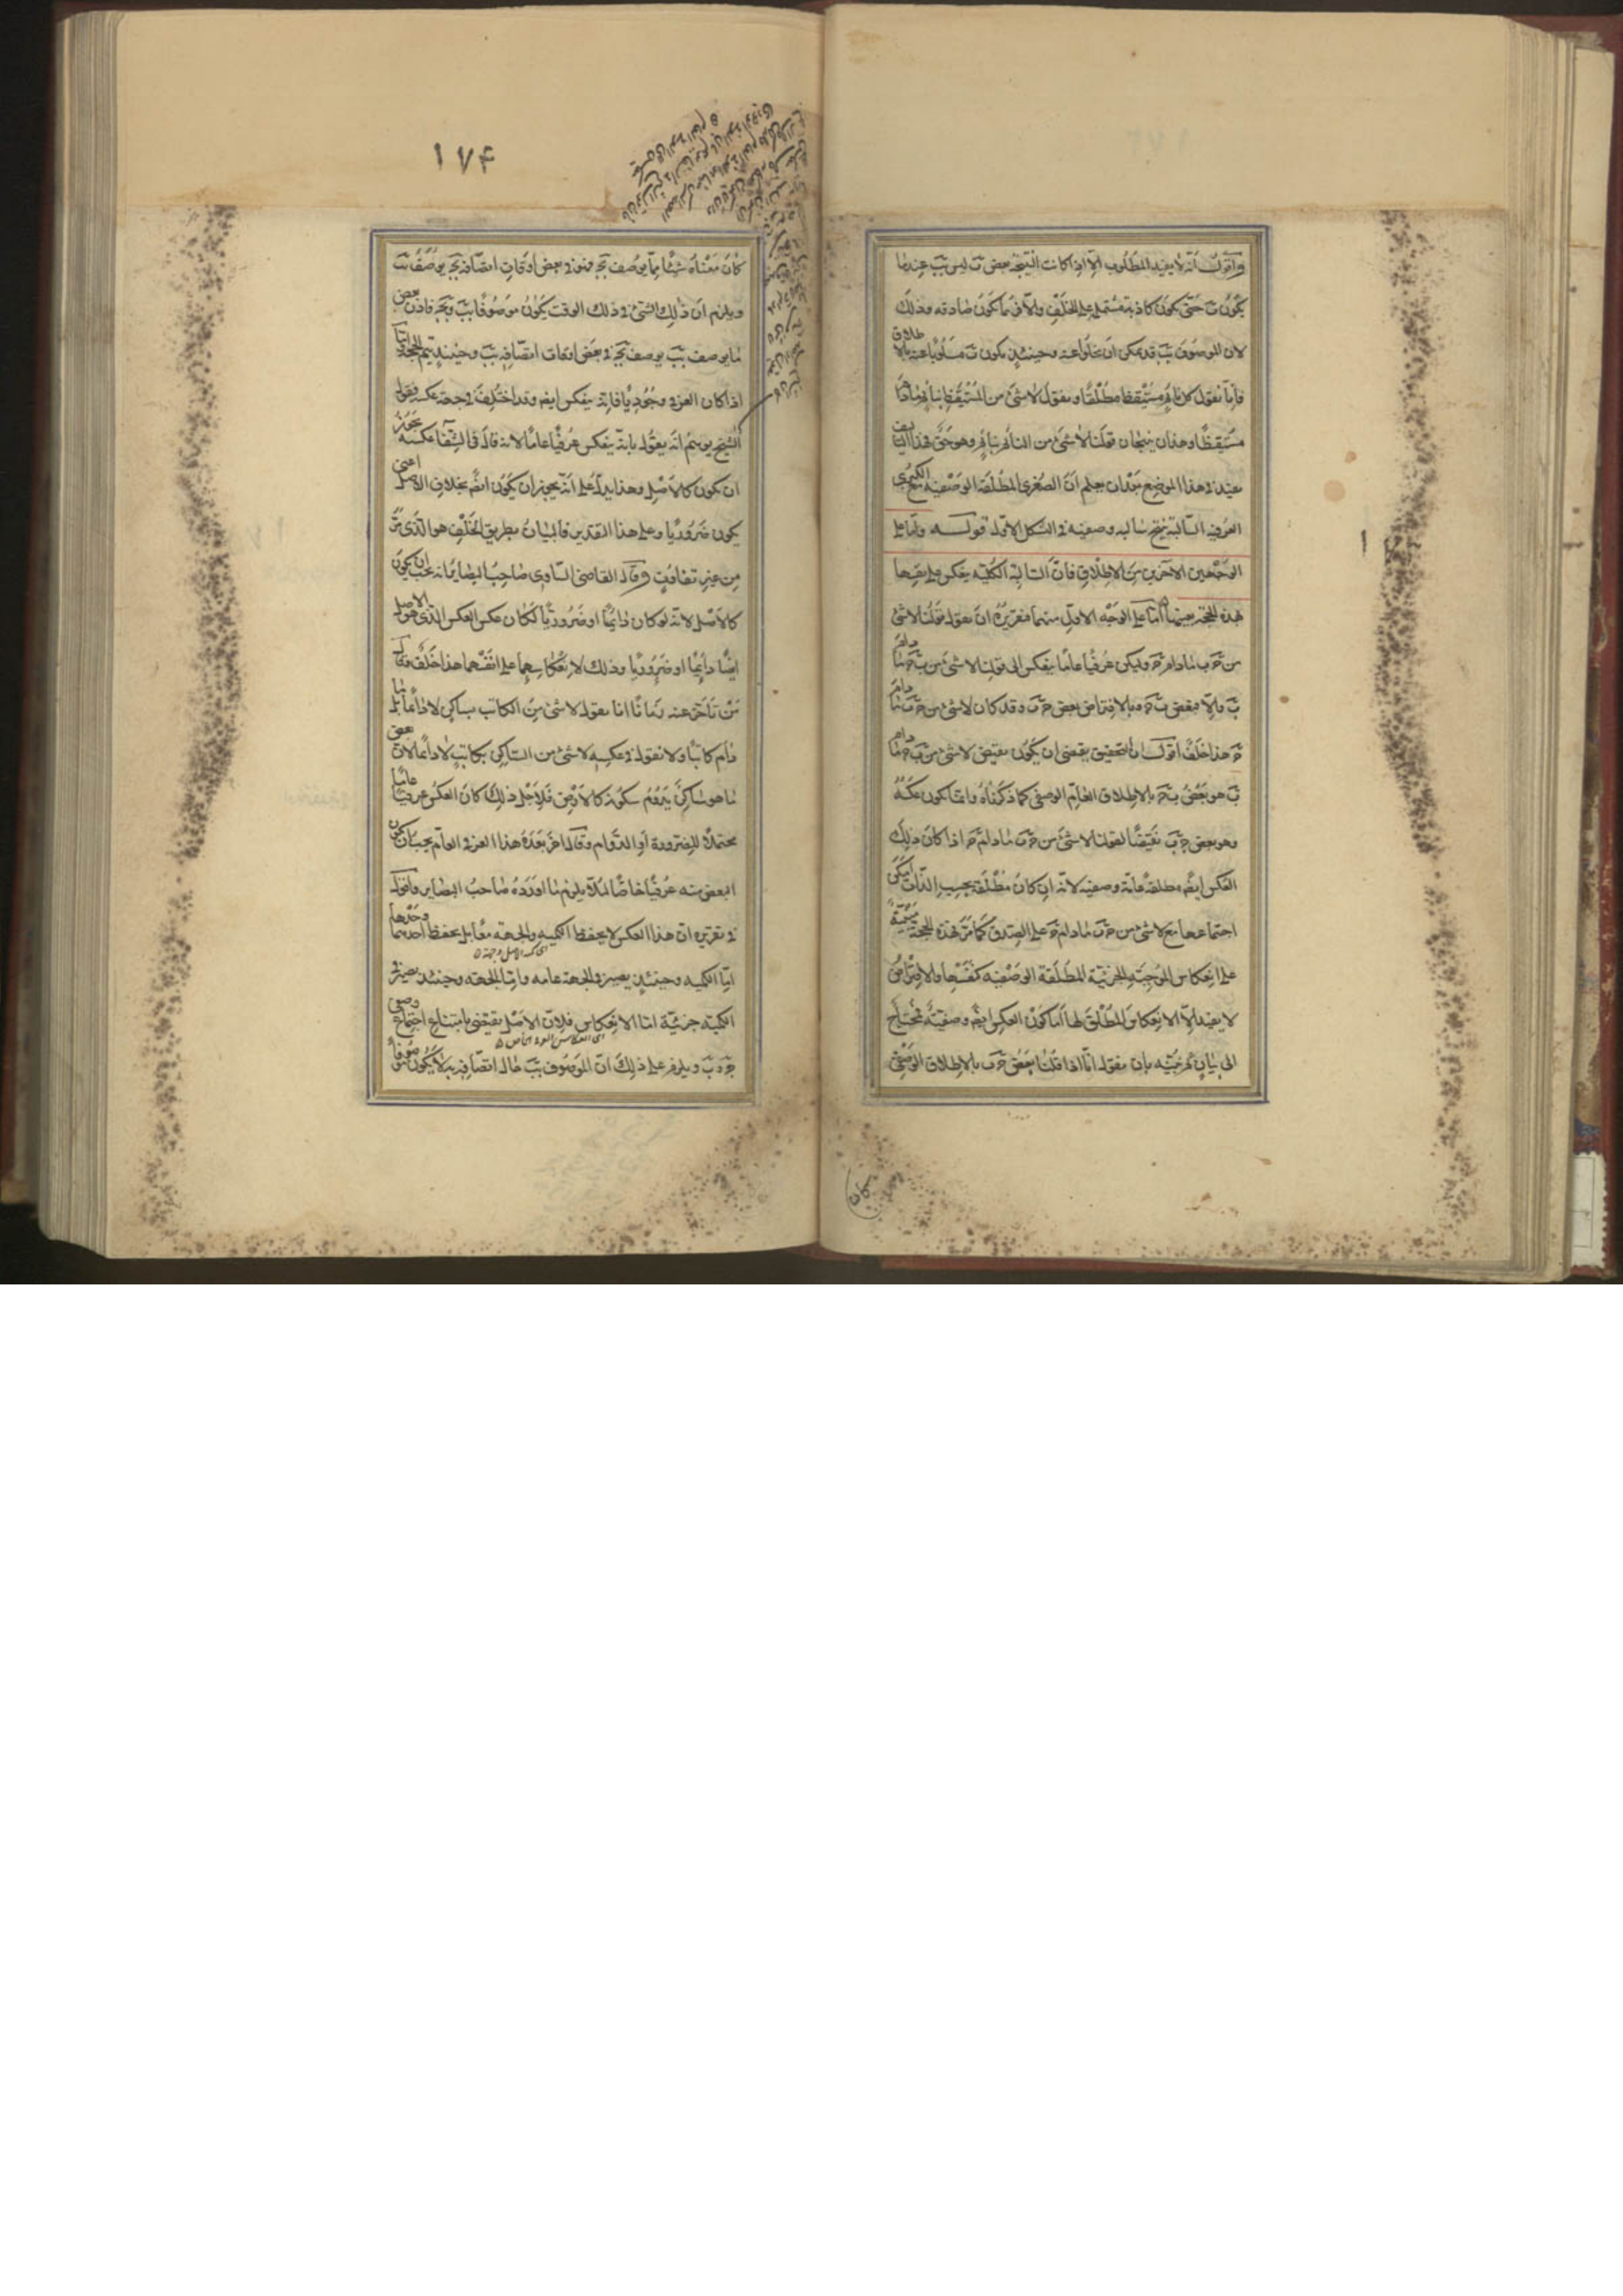 واقول انه لا يفيد المطلوب الا اذا كانت النتيجة بعض ب ليس ب عندما
يكون ب حتى يكون كاذبة مشتملة على الخلف والا فربما يكون صادقه وذلك
لان الموصوف ببّ قد يمكن ان يخلو عنه وحينئذ يكون ب مسلوبا عنه بالاطلاق
فانا نقول كل نائم مستيقظ مطلقا ونقول لا شئ من المستيقظ بنائم مادام
مستيقظا وهذان ينتجان قولنا لا شئ من النائم بنائم وهو حق فهذا التاليف
يفيد في هذا الموضع بعد ان يعلم ان الصغرى المطلقة الوصفيه مع الكبرى
العرفيه السالبة ينتج سالبه وصفيه في الشكل الاول قوله واما على
الوجهين الاخرين من الاطلاق فان السالبة الكلية ينعكس على نفسها
بهذه الحجة بعينها اما على الوجه الاول منهما فتقريره ان نقول قولنا لا شئ
من ج ب مادام ج وليكن عرفيا عاما ينعكس الى قولنا لا شئ من ب ج مادام
ب والا فبعض ب ج وبالافتراض بعض ج ب وقد كان لا شئ من ج ب مادام
ج هذا خلف اقول التحقيق يقتضى ان يكون نقيض لا شئ من ب ج مادام
ب هو بعض ب ج بالاطلاق العام الوصفى كما ذكرناه وانما يكون عكسه
وهو بعض ج ب نقيضا لقولنا لا شئ من ج ب مادام ج اذا كان ذلك
العكس ايضا مطلقة عامة وصفيه لانه ان كان مطلقة بحسب الذات امكن
اجتماعها مع لا شئ من ج ب مادام ج على الصدق كما مر فهذه الحجة مبنية
على انعكاس الموجبة الجزئية المطلقة الوصفيه كنفسها والافتراض
لا يفيد الا الانعكاس المطلق لها اما كون العكس ايضا وصفية فمحتاج
الى بيان نخبيه بان نقول انا اذا قلنا بعض ج ب بالاطلاق الوصفى
كان
١٧۴
كان معناه شيئا مما يوصف بج فهو في بعض اوقات اتصافه بج يوصف بب
ويلزم ان ذلك الشئ في ذلك الوقت يكون موصوفا ببّ وبج فاذن بعض
ما يوصف ببّ يوصف بج في بعض اوقات اتصافه ببّ وحينئذ يتم الحجة واما
اذا كان العرفي وجوديا فانه ينعكس ايضا وقد اختلف في جهة عكسه فقول
الشيخ يوهم انه يقول بانه ينعكس عرفيا عاما لانه قال في الشفا عكسه يجوز
ان يكون كالاصل وهذا يدل على انه يجوز ان يكون ايضا بخلاف الاصل اعنى
يكون ضروريا وعلى هذا التقدير فالبيان بطريق الخلف هو الذى مرّ
من غير تفاوت وقال القاضى الساوى صاحب البصائر انه يجب ان يكون
كالاصل لانه لو كان دائما او ضروريا لكان عكس العكس الذى هو الاصل
ايضا دائما او ضروريا وذلك لانعكاسهما على انفسهما هذا خلف وقال
من تاخر عنه زمانا انا نقول لا شئ من الكاتب بساكن لا دائما بل ما
دام كاتبا ولا نقول في عكسه لا شئ من الساكن بكاتب لا دائما لان بعض
ما هو ساكن يدوم سكونه كالارض فلاجل ذلك كان العكس عرفيا عاما
محتملا للضرورة او الدوام وقال اخر بعده هذا العرفي العام يجب ان يكون
البعض منه عرفيا خاصا لئلا يلزم ما اورده صاحب البصائر واقول
في تقريره ان هذا العكس لا يحفظ الكمية والجهة معا بل يحفظ احدهما وحدها
اما الكميه وحينئذ يصير في الجهة عامه واما الجهة وحينئذ يصير في
الكمية جزئية اما الانعكاس فلان الاصل يقتضى بامتناع اجتماع وصفى
ج وب ويلزم على ذلك ان الموصوف ببّ حال اتصافه به لا يكون موصوفا